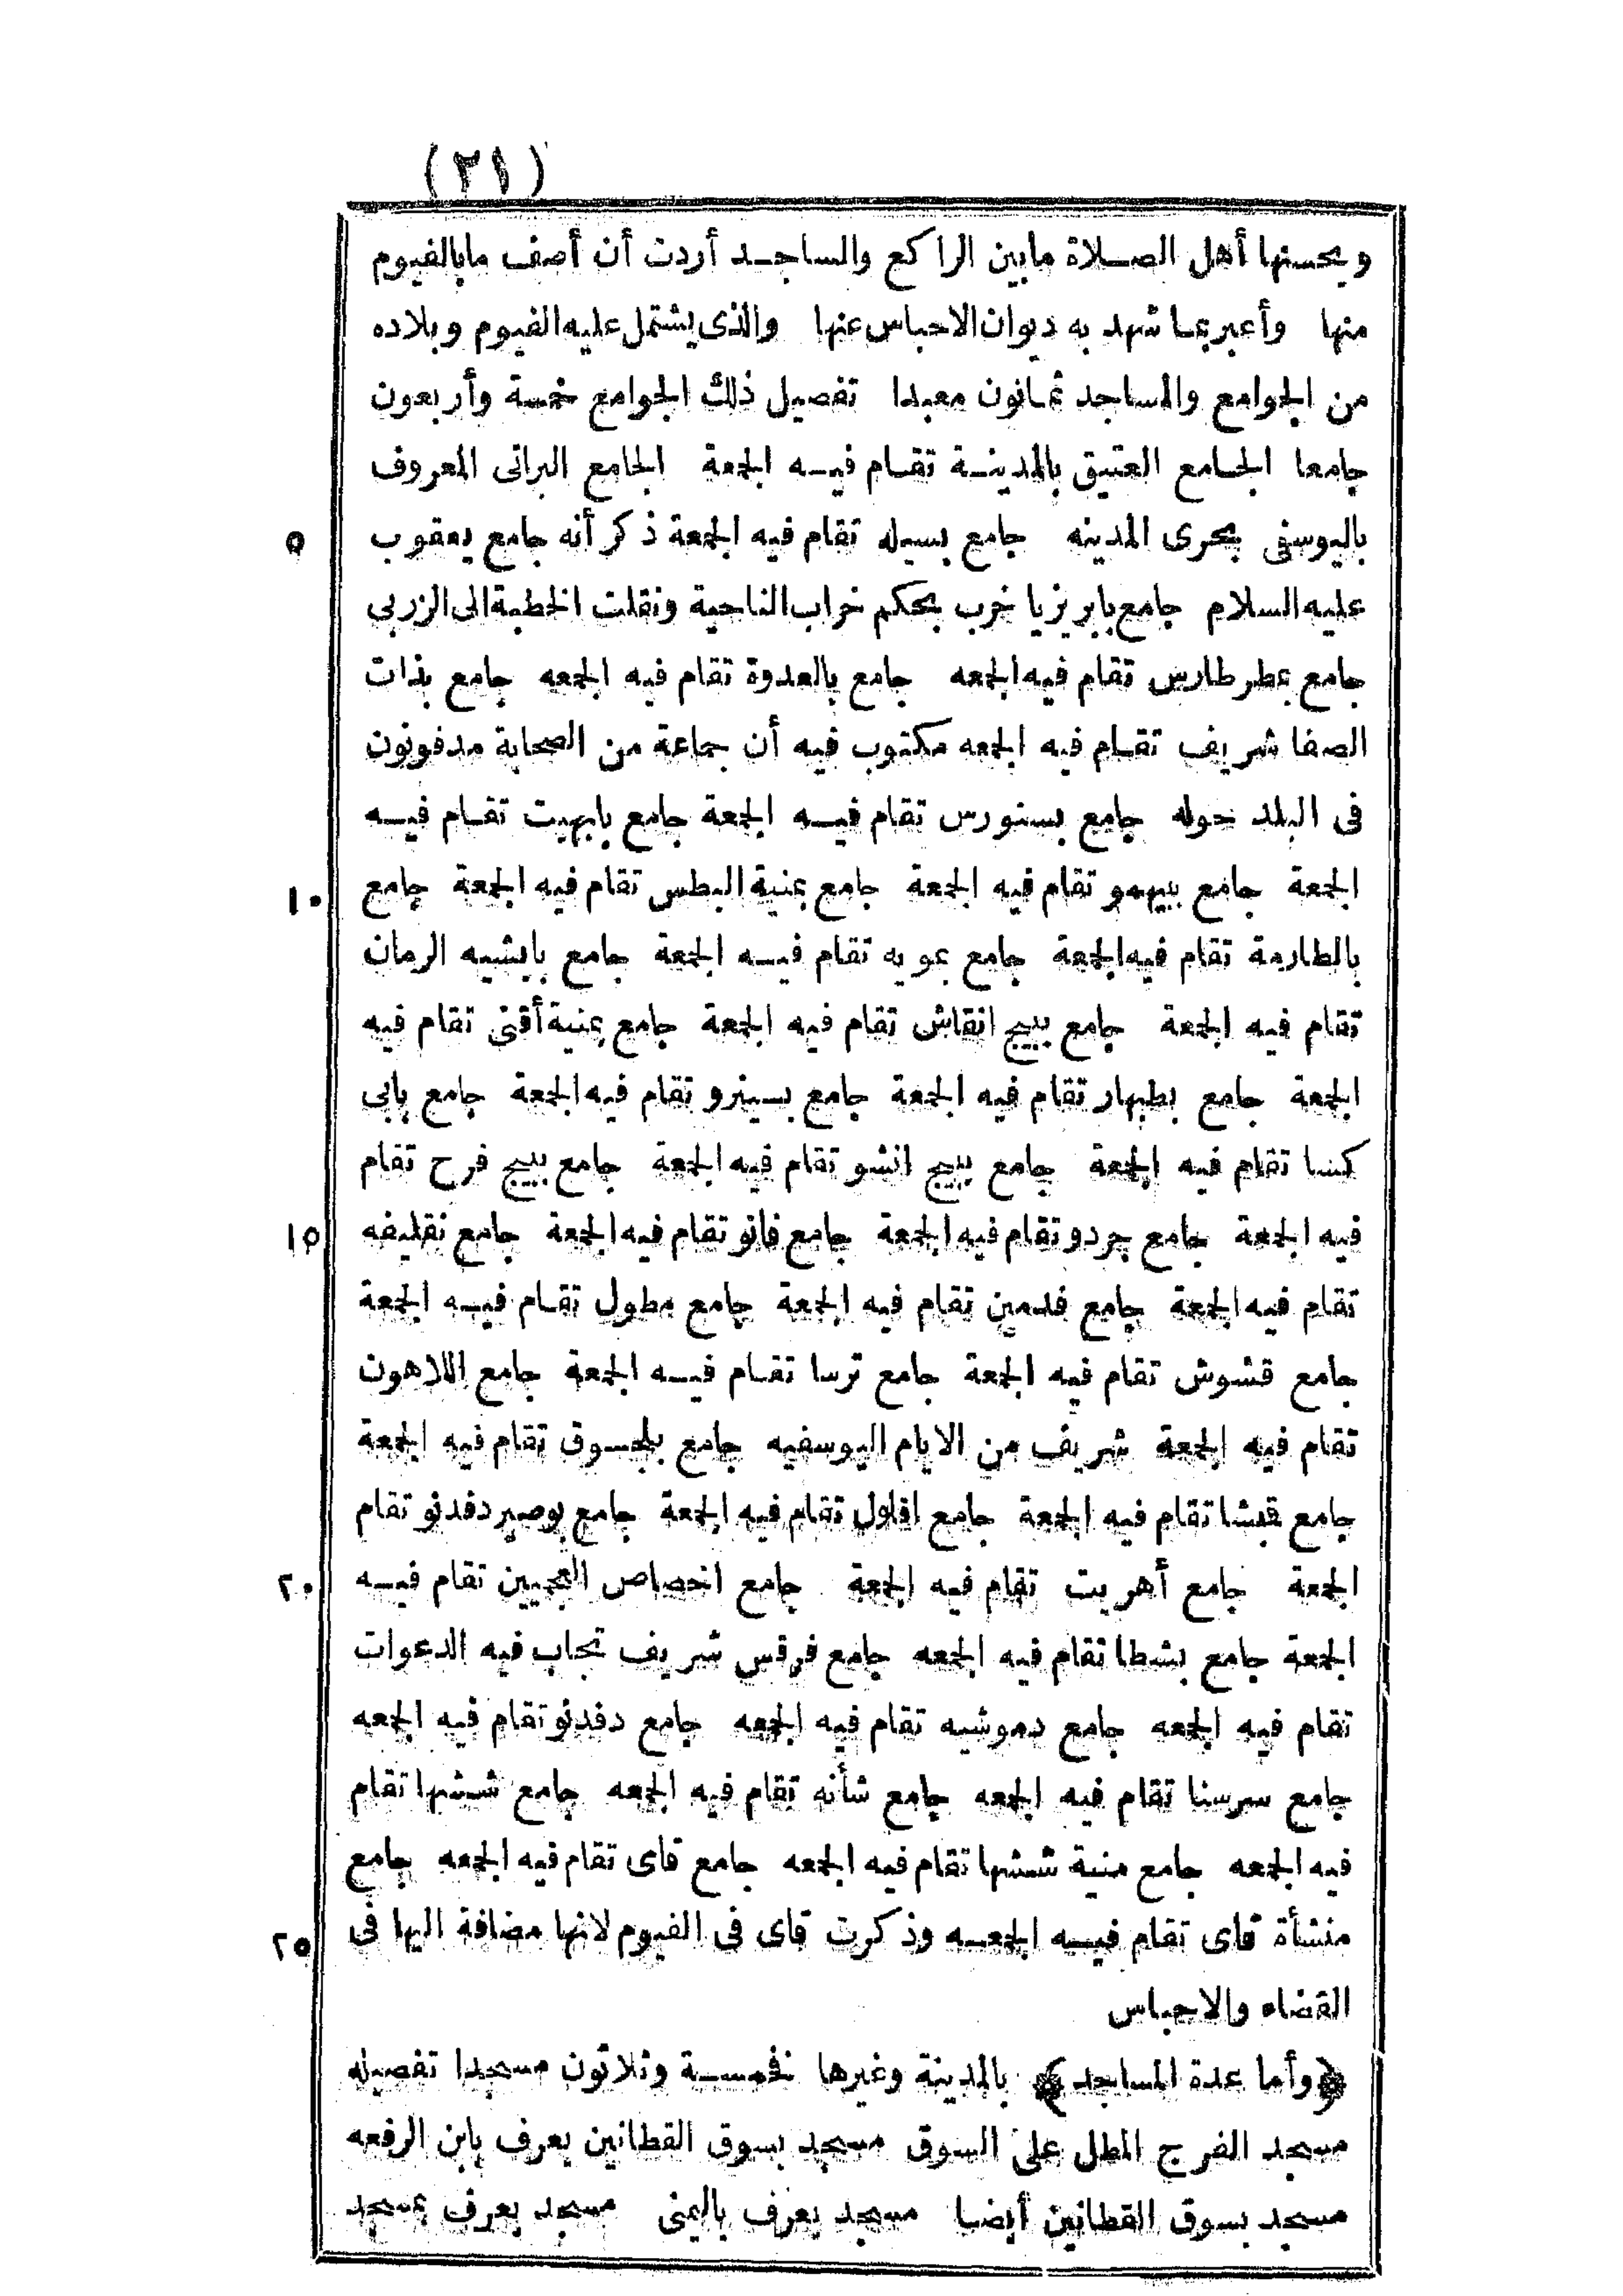 (٢١)
ويحسنها أهل الصلاة مابين الراكع والساجد أردت أن أصف مابالفيوم
منها وأعبر عما شهد به ديوان الاحباس عنها والذى يشتمل عليه الفيوم وبلاده
من الجوامع والمساجد ثمانون معبدا تفصيل ذلك الجوامع خمسة وأربعون
جامعا الجامع العتيق بالمدينة تقام فيه الجمعة الجامع البرانى المعروف
باليوسفى بحرى المدينه جامع بسيله تقام فيه الجمعة ذكر أنه جامع يعقوب ٥
عليه السلام جامع بابريزيا خرب بحكم خراب الناحية ونقلت الخطبة الى الزربى
جامع بمطرطارس تقام فيه الجمعه جامع بالعدوة تقام فيه الجمعه جامع بذات
الصفا شريف تقام فيه الجمعه مكتوب فيه أن جماعة من الصحابة مدفونون
فى البلد حوله جامع بسنورس تقام فيه الجمعة جامع بابهيت تقام فيه
الجمعة جامع ببيهمو تقام فيه الجمعة جامع بمنية البطس تقام فيه الجمعة جامع ١٠
بالطارمة تقام فيه الجمعة جامع بمويه تقام فيه الجمعة جامع بابشيه الرمان
تقام فيه الجمعة جامع ببيج انقاش تقام فيه الجمعة جامع بمنية أقنى تقام فيه
الجمعة جامع بطبهار تقام فيه الجمعة جامع بسينرو تقام فيه الجمعة جامع بابى
كسا تقام فيه الجمعة جامع ببيج انشو تقام فيه الجمعة جامع ببيج فرح تقام
فيه الجمعة جامع جردو تقام فيه الجمعة جامع فانو تقام فيه الجمعة جامع نقليفه ١٥
تقام فيه الجمعة جامع فدمين تقام فيه الجمعة جامع مطول تقام فيه الجمعة
جامع قشوش تقام فيه الجمعة جامع ترسا تقام فيه الجمعة جامع اللاهون
تقام فيه الجمعة شريف من الايام اليوسفيه جامع بلجسوق تقام فيه الجمعة
جامع قبشا تقام فيه الجمعة جامع اقلول تقام فيه الجمعة جامع بوصير دفدنو تقام
الجمعة جامع أهريت تقام فيه الجمعة جامع اخصاص العجميين تقام فيه ٢٠
الجمعة جامع بشطا تقام فيه الجمعه جامع فرقس شريف تجاب فيه الدعوات
تقام فيه الجمعه جامع دموشيه تقام فيه الجمعه جامع دفدنو تقام فيه الجمعه
جامع سرسنا تقام فيه الجمعه جامع شأنه تقام فيه الجمعه جامع ششها تقام
فيه الجمعه جامع منية ششها تقام فيه الجمعه جامع قاى تقام فيه الجمعه جامع
منشأة قاى تقام فيه الجمعه وذكرت قاى فى الفيوم لانها مضافة اليها فى ٢٥
القضاء والاحباس
﴿وأما عدة المساجد﴾ بالمدينة وغيرها فخمسة وثلاثون مسجدا تفصيله
مسجد الفرج المطل على السوق مسجد بسوق القطانين يعرف بابن الرفعه
مسجد بسوق القطانين أيضا مسجد يعرف باليمنى مسجد يعرف بمسجد